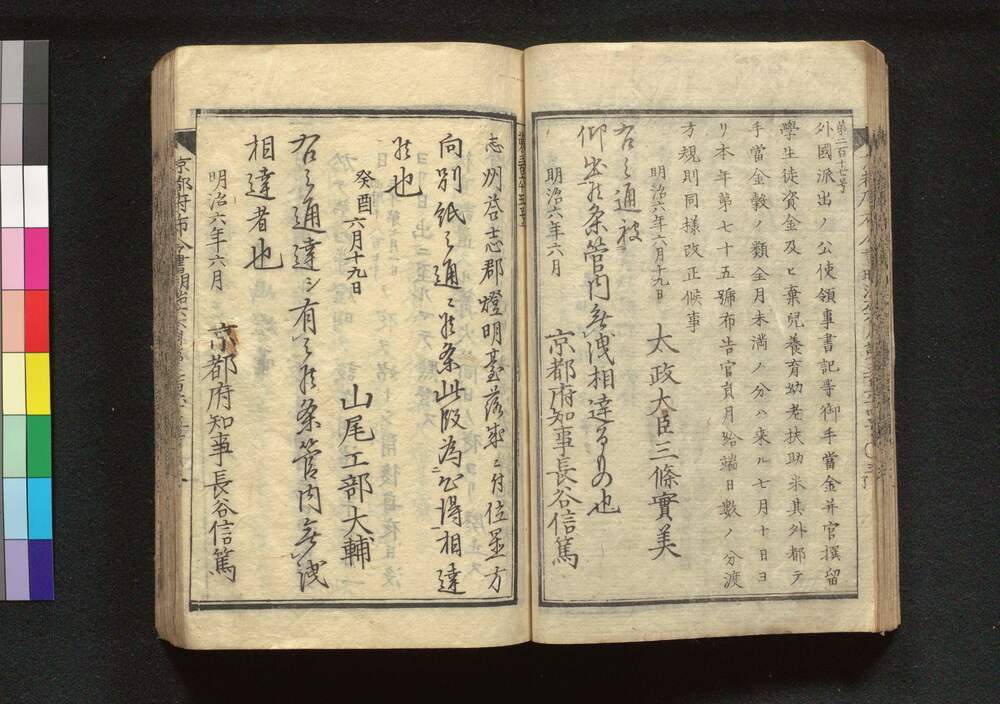 第二百十七号
外國派出ノ公使領事書記等御手當金并官撰留
學生徒資金及ヒ棄兒養育幼老扶助米其外都テ
手當金穀ノ類全月未満ノ分ハ来ル七月十日ヨ
リ本年第七十五號布告官員月給端日數ノ分渡
方規則同様改正候事
明治六年六月十九日
太政大臣三條實美
右之通被
仰出候条管内無洩相達るもの也
明治六年六月
京都府知事長谷信篤
志州答志郡燈明臺落成ニ付位置方
向別紙之通ニ候条此段為心得相達
候也
癸酉六月十九日
山尾工部大輔
右之通達シ有之候条管内無洩
相達者也
明治六年六月
京都府知事長谷信篤
京都府布令書明治六年